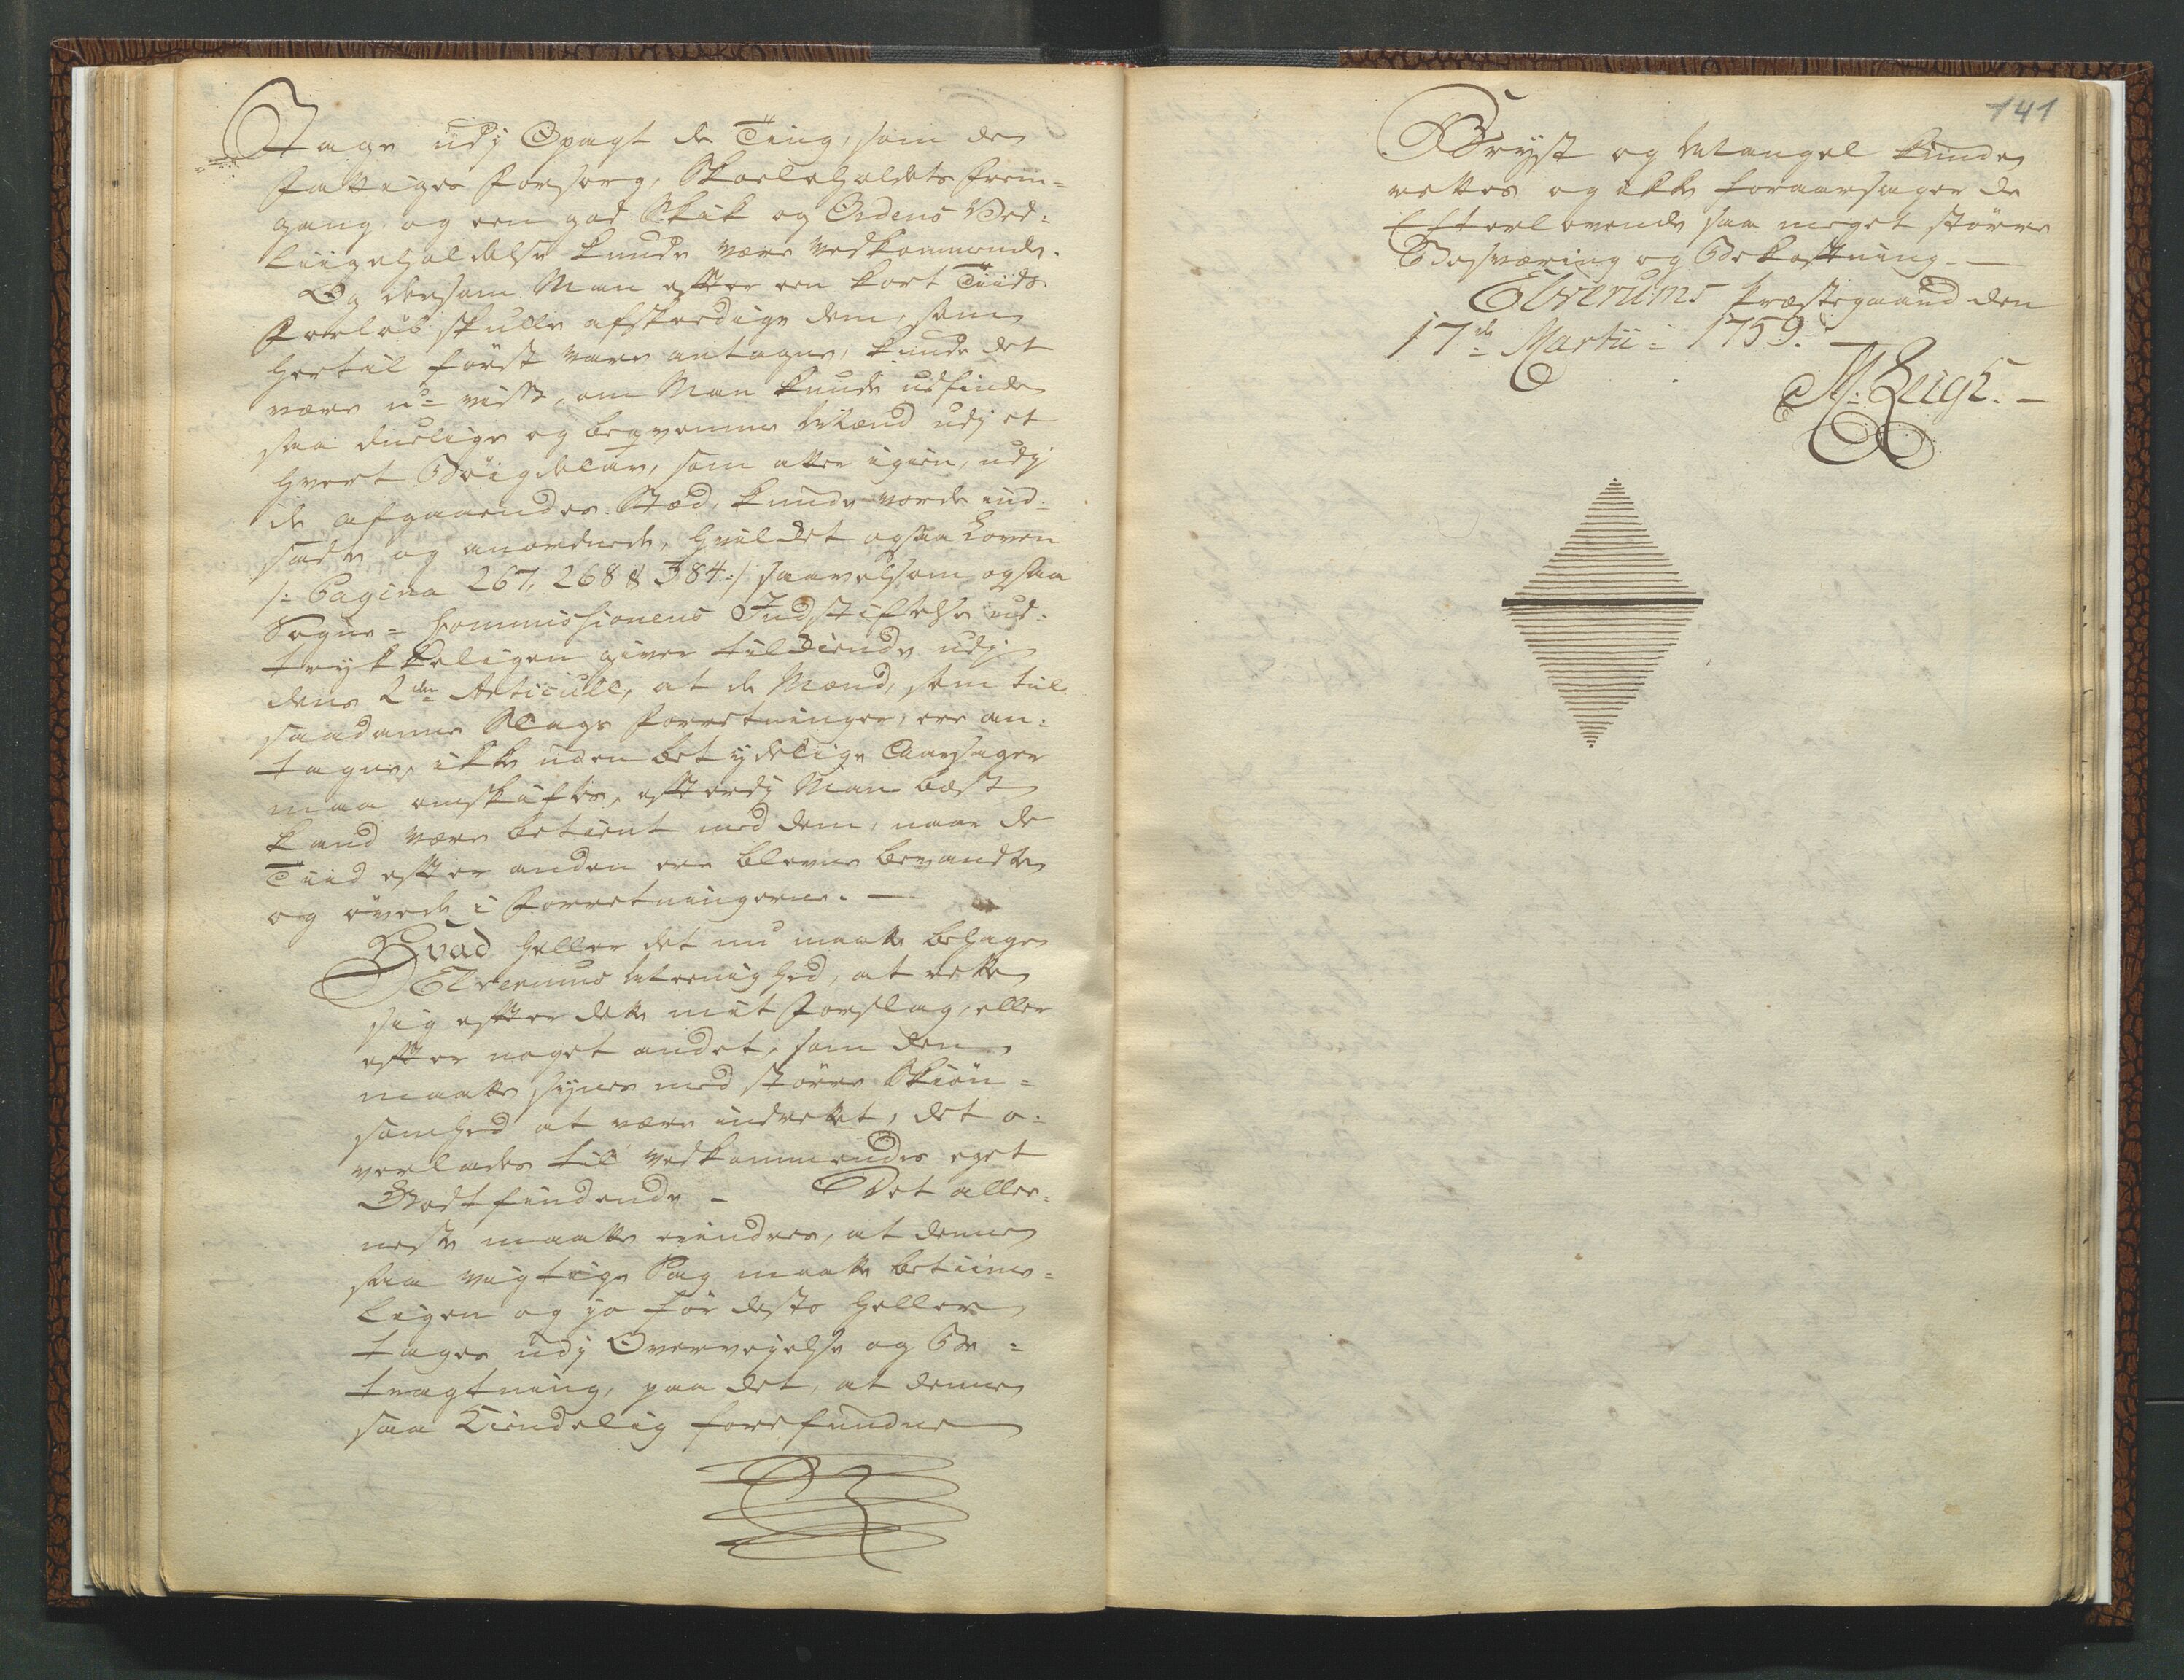 Tage udj Opagt de Ting, som de
Fattiges Forsorg, Skoleholdets Frem=
gang og een god Skik og Ordens Ved=
ligeholdelse kunde være vedkommende.
Og dersom Man efter een kort Tiids
Forløb skulle afskedige dem, som
hertil først vare antagne, kunde det
være u=vist, om Man kunde udfinde
saa duelige og beqvemme Mænd udj et
hvert Böigdelav, som atter igien, udj
de afgaaendes Stæd, kunde vorde ind=
satte og anordnede, hvilket ogsaa Loven
/: Pagina 267, 268 & 384 :/ saavelsom ogsaa
Sogne=Commissionens Indstiftelse ud=
trykkeligen giver tilkiende udj
dens 2den Articull, at de Mænd, som til
saadanne Slags Forretninger ere an=
tagne, ikke uden betydelige Aarsager
maa omskiftes, efterdj Man bæst
kand være betient med dem, naar de
Tiid efter anden ere blevne bevandte
og øvede i Forretningerne. —
Hvad heller det nu maatte behage
Elverums Meenighed, at rette
sig efter dette mit Forslag, eller
efter noget andet, som den
maatte synes med större Skiön=
somhed at være indrettet, det o=
verlades til vedkommendes eget
Godtfindende - Det aller=
neste maatte erindres, at denne
saa vigtige Sag maatte betime=
ligen og jo för desto heller
tages udj Overvejelse og Be=
tragtning, paa det, at denne
saa kiendelig forefundne
141
Bryst og Mangel kunde
rettes og ikke foraarsager de
Efterlevende saa meget större
Besværing og Bekostning. —
Elverums Præstegaard den
17de Martii = 1759.
M: Leigh. —